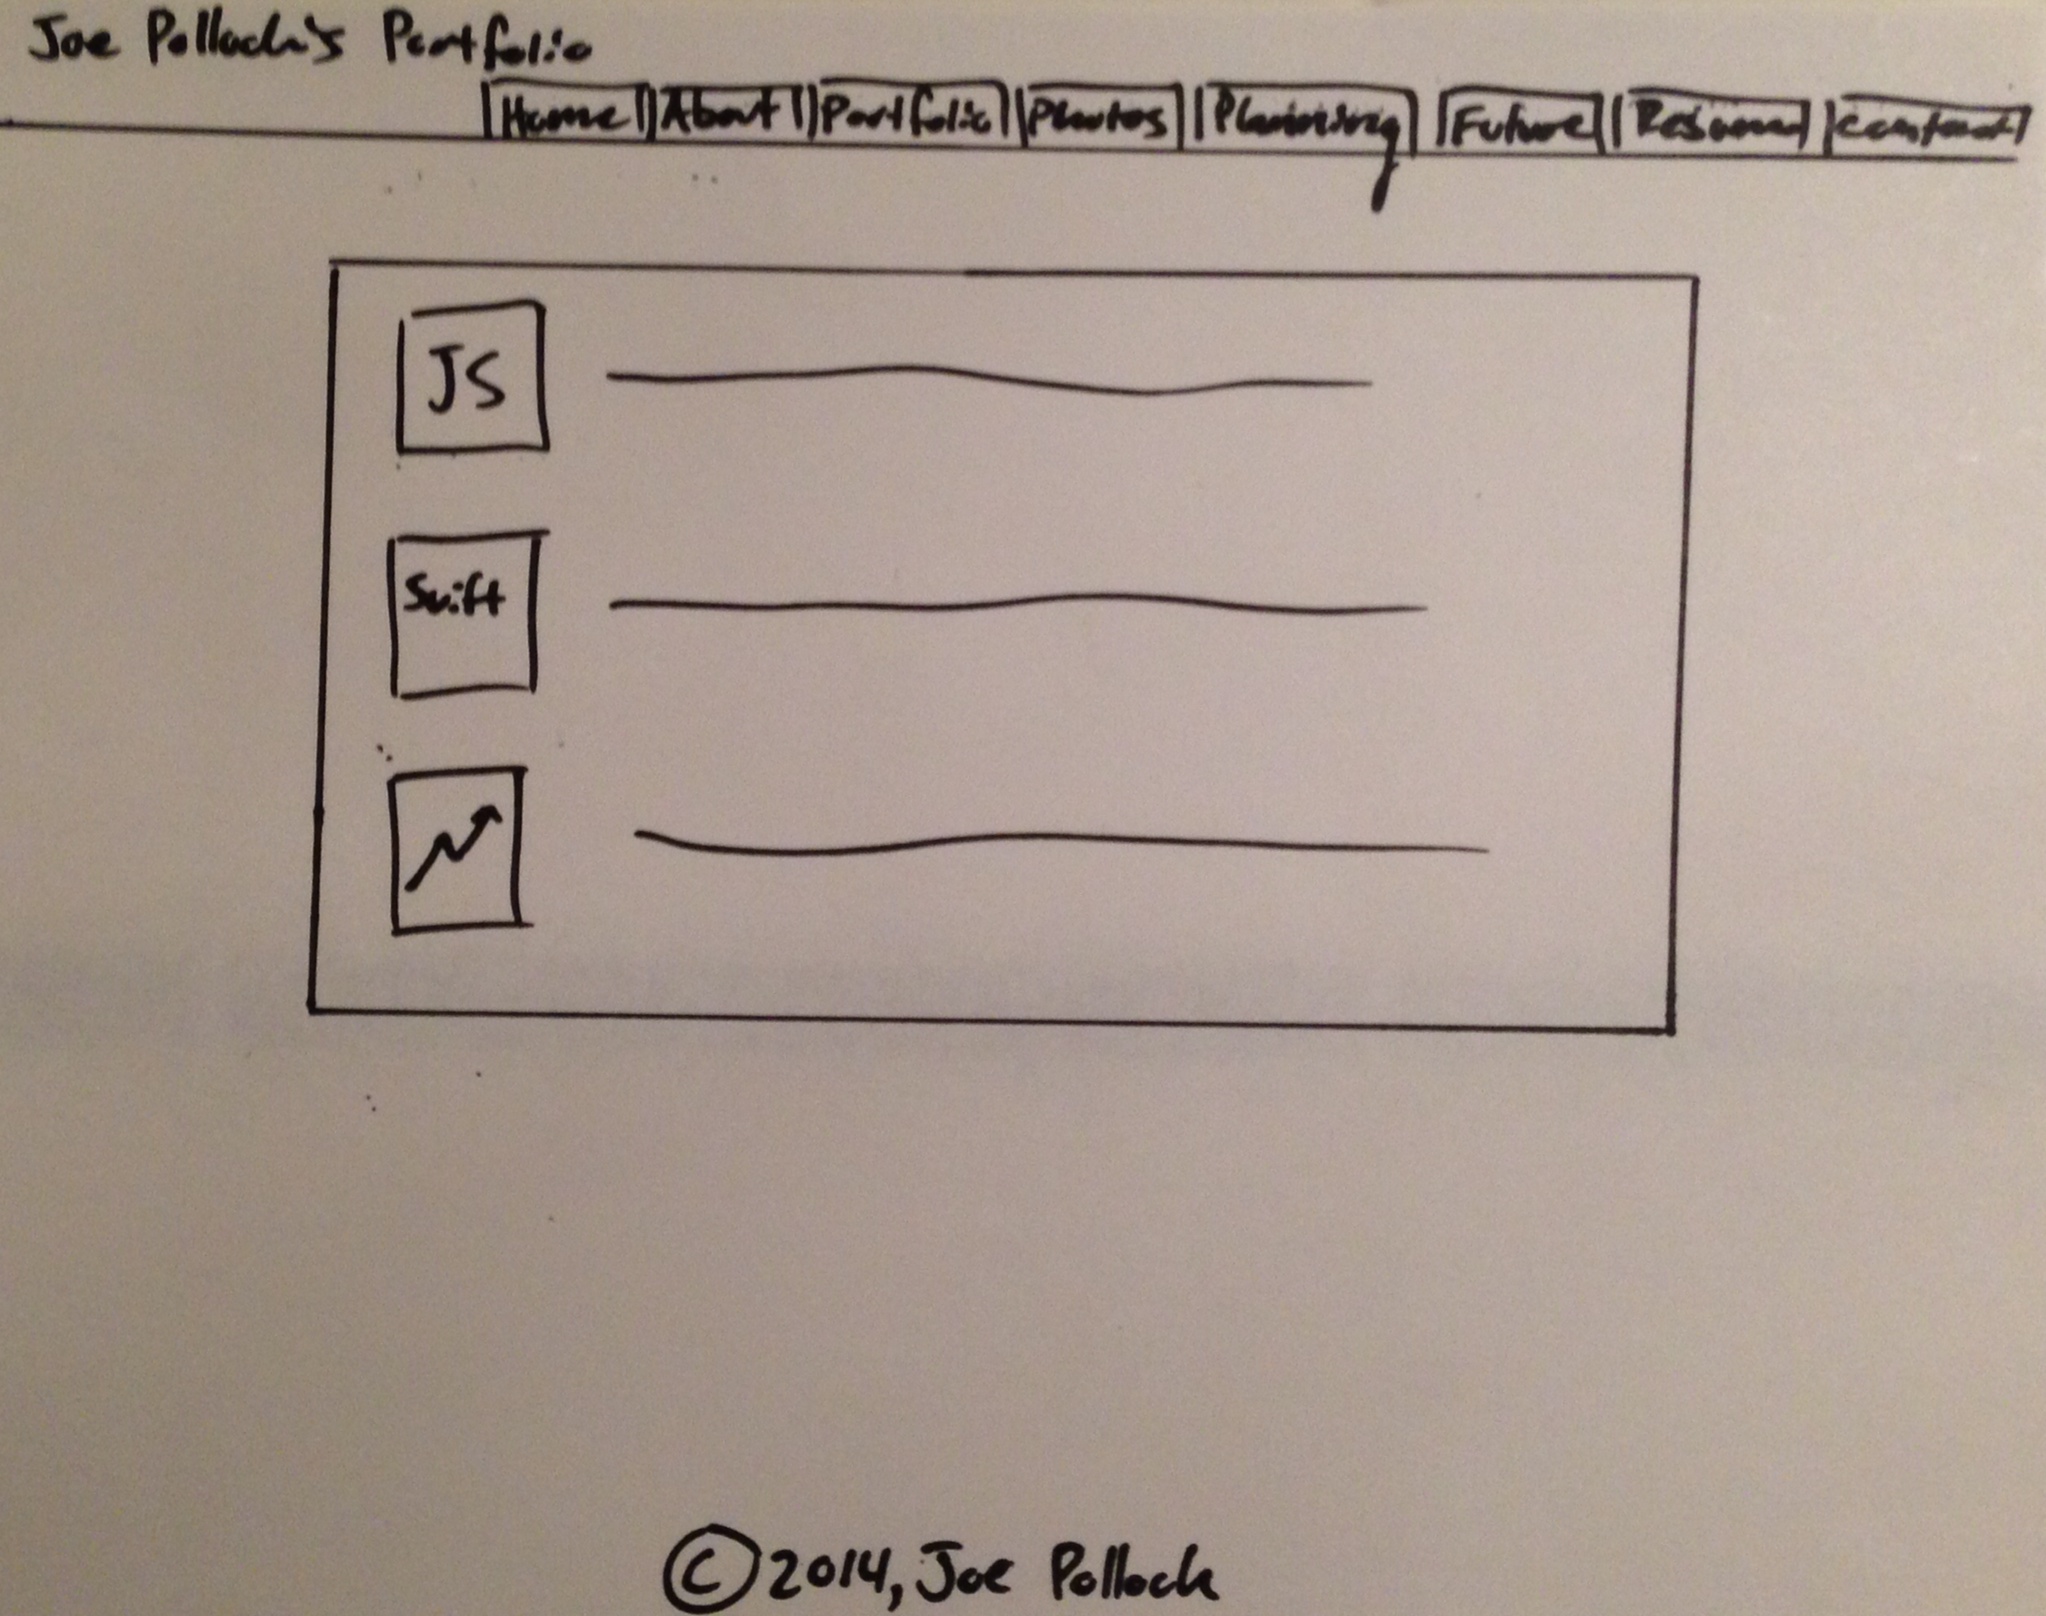 Joe Pollock's Portfolio
Home About Portfolio Photos Planning Future Resume contact
JS
Swift
© 2014, Joe Pollock